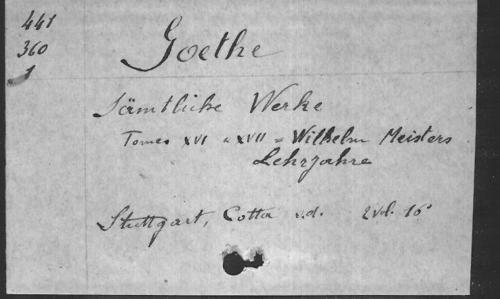 441
360
1
Goethe
Sämtliche Werke
Tomes XVI & XVII = Wilhelm Meisters
Lehrjahre
Stuttgart, Cotta s.d. 2 vol. 16°